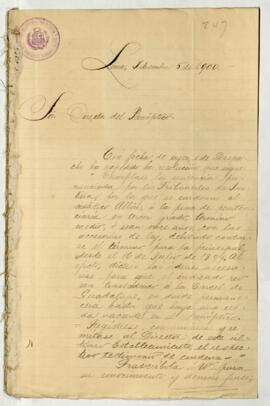 247
Lima, Diciembre 5 de 1900.
Sor. Director del Panóptico
Con fecha de ayer, este Despa-
cho ha expedido la resolución que sigue:
"Cúmplase la sentencia pro-
nunciada por los Tribunales de Jus-
ticia, por la que se condena al
asiático a la pena de peniten-
ciaria en tercer grado, término
medio, ó sean once años, con las
accesorias de ley, debiendo contar-
se el término para la principal,
desde el 16 de Julio de 1894. Al
efecto, díctese las órdenes necesa-
rias para que el indicado reo
sea trasladado a la Cárcel de
Guadalupe, en donde permane-
cerá hasta que haya una cel-
da vacante en el Panóptico.-
Regístrese, comuníquese y re-
mítase al Director de este úl-
timo Establecimiento, el respec-
tivo testimonio de condena.-
Trascríbolo a U. para
su conocimiento y demás fines.